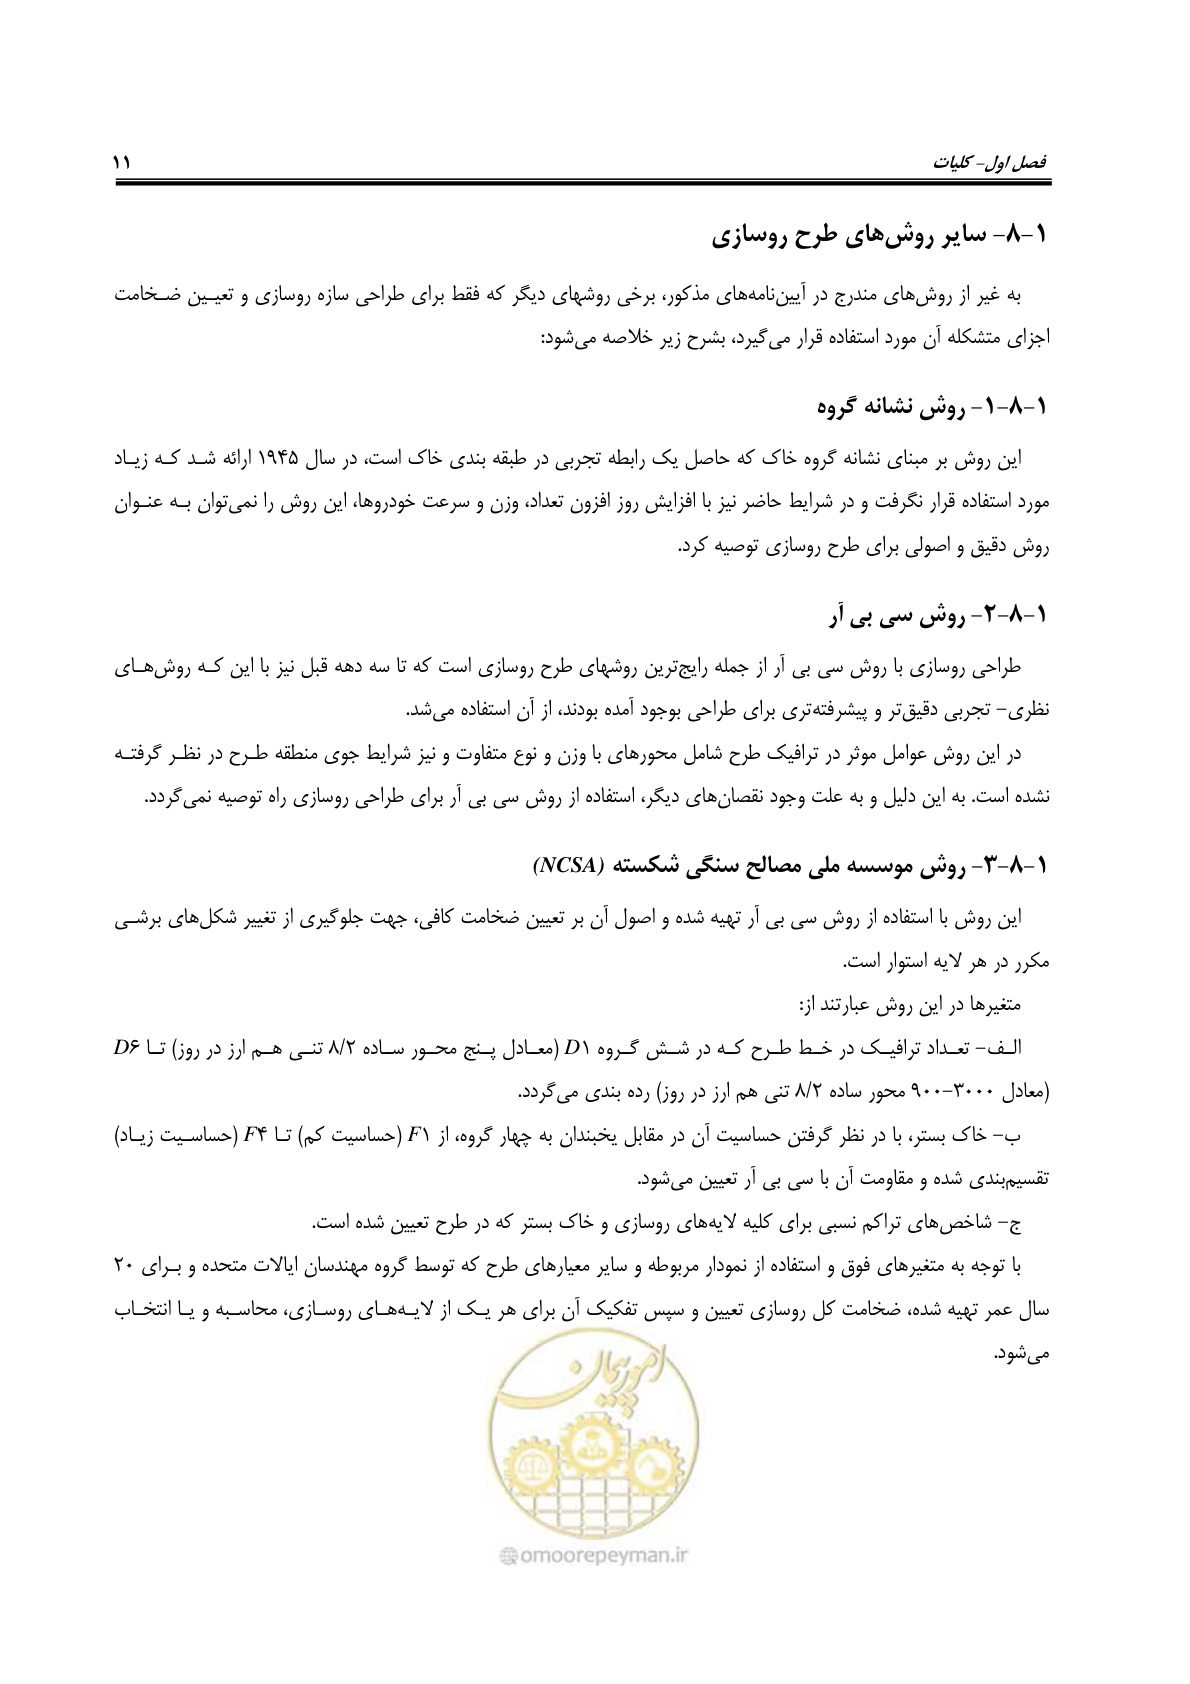 فصل اول- کلیات ۱۱
۱-۸- سایر روش‌های طرح روسازی
به غیر از روش‌های مندرج در آیین‌نامه‌های مذکور، برخی روشهای دیگر که فقط برای طراحی سازه روسازی و تعیـین ضـخامت
اجزای متشکله آن مورد استفاده قرار می‌گیرد، بشرح زیر خلاصه می‌شود:
۱-۸-۱- روش نشانه گروه
این روش بر مبنای نشانه گروه خاک که حاصل یک رابطه تجربی در طبقه بندی خاک است، در سال ۱۹۴۵ ارائه شـد کـه زیـاد
مورد استفاده قرار نگرفت و در شرایط حاضر نیز با افزایش روز افزون تعداد، وزن و سرعت خودروها، این روش را نمی‌توان بـه عنـوان
روش دقیق و اصولی برای طرح روسازی توصیه کرد.
۱-۸-۲- روش سی بی آر
طراحی روسازی با روش سی بی آر از جمله رایج‌ترین روشهای طرح روسازی است که تا سه دهه قبل نیز با این کـه روش‌هـای
نظری- تجربی دقیق‌تر و پیشرفته‌تری برای طراحی بوجود آمده بودند، از آن استفاده می‌شد.
در این روش عوامل موثر در ترافیک طرح شامل محورهای با وزن و نوع متفاوت و نیز شرایط جوی منطقه طـرح در نظـر گرفتـه
نشده است. به این دلیل و به علت وجود نقصان‌های دیگر، استفاده از روش سی بی آر برای طراحی روسازی راه توصیه نمی‌گردد.
۱-۸-۳- روش موسسه ملی مصالح سنگی شکسته (NCSA)
این روش با استفاده از روش سی بی آر تهیه شده و اصول آن بر تعیین ضخامت کافی، جهت جلوگیری از تغییر شکل‌های برشـی
مکرر در هر لایه استوار است.
متغیرها در این روش عبارتند از:
الـف- تعـداد ترافیـک در خـط طـرح کـه در شـش گـروه D۱ (معـادل پـنج محـور سـاده ۸/۲ تنـی هـم ارز در روز) تـا D۶
(معادل ۳۰۰۰-۹۰۰ محور ساده ۸/۲ تنی هم ارز در روز) رده بندی می‌گردد.
ب- خاک بستر، با در نظر گرفتن حساسیت آن در مقابل یخبندان به چهار گروه، از F۱ (حساسیت کم) تـا F۴ (حساسـیت زیـاد)
تقسیم‌بندی شده و مقاومت آن با سی بی آر تعیین می‌شود.
ج- شاخص‌های تراکم نسبی برای کلیه لایه‌های روسازی و خاک بستر که در طرح تعیین شده است.
با توجه به متغیرهای فوق و استفاده از نمودار مربوطه و سایر معیارهای طرح که توسط گروه مهندسان ایالات متحده و بـرای ۲۰
سال عمر تهیه شده، ضخامت کل روسازی تعیین و سپس تفکیک آن برای هر یـک از لایـه‌هـای روسـازی، محاسـبه و یـا انتخـاب
می‌شود.
امور پیمان
omoorepeyman.ir